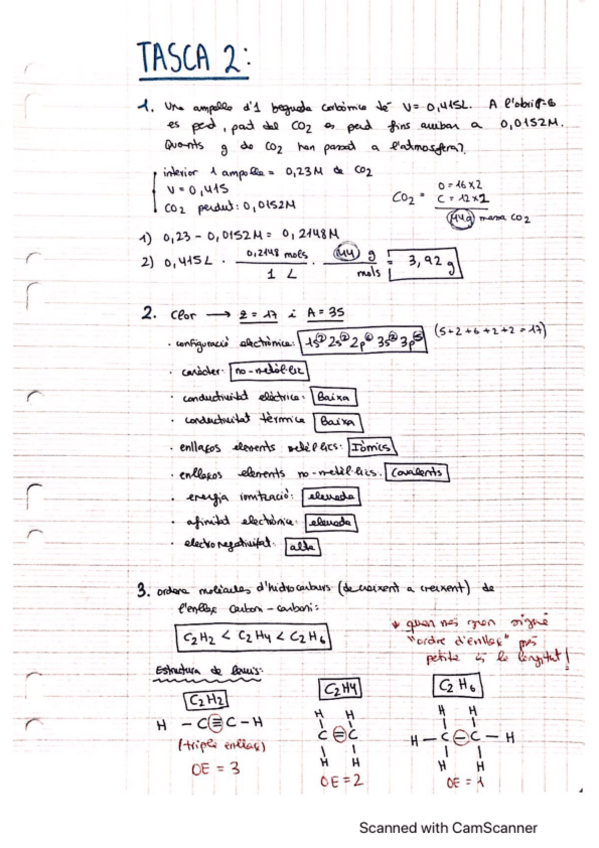 TASCA 2:
1. Una ampolla d'1 beguda carbònica té V= 0,415L. A l'obrir-la
es perd, part del CO2 es perd fins arribar a 0,0152M.
Quants g de CO2 han passat a l'atmosfera?
interior 1 ampolla = 0,23M de CO2
V = 0,415
CO2 perdut: 0,0152M
CO2 =
O = 16x2
C = 12x1
44g massa CO2
1) 0,23 - 0,0152M = 0,2148M
2) 0,415L · 0,2148 mols / 1 L · 44 g / mols = 3,92 g
2. Clor → Z = 17 i A = 35
· configuració electrònica: 1s2 2s2 2p6 3s2 3p5 (5+2+6+2+2=17)
· caràcter: no-metàl·lic
· conductivitat elèctrica: Baixa
· conductivitat tèrmica: Baixa
· enllaços elements metàl·lics: Iònics
· enllaços elements no-metàl·lics: Covalents
· energia ionització: elevada
· afinitat electrònica: elevada
· electronegativitat: alta
3. ordena molècules d'hidrocarburs (decreixent a creixent) de
l'enllaç carboni-carboni:
C2H2 < C2H4 < C2H6
* quan més gran sigui
"ordre d'enllaç" més
petita és la longitud!
Estructura de Lewis:
C2H2
C2H4
C2H6
H - C ≡ C - H
H H
C = C
H H
H H
H - C - C - H
H H
(triple enllaç)
OE = 3
OE = 2
OE = 1
Scanned with CamScanner